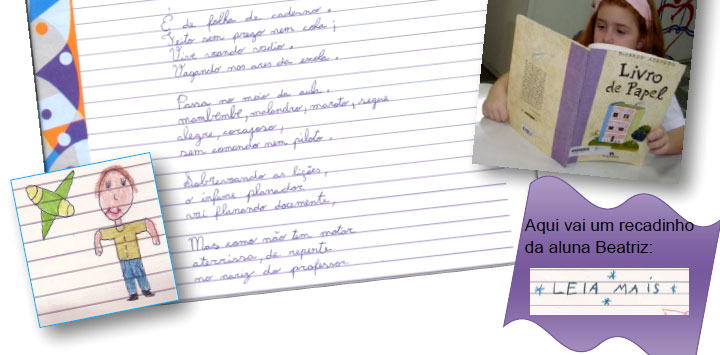 É de folha de caderno.
Feito sem prego nem cola;
Vive sendo vadio.
Vagando nos ares da escola.
Passa no meio da aula.
mambembe, malandro, maroto, segue
alegre, corajoso,
sem comando nem piloto.
Sobrevoando as lições,
o infame planador
vai planando docemente,
Mas como não tem motor
aterrissa, de repente
no nariz do professor.
RICARDO AZEVEDO
Livro
de Papel
Aqui vai um recadinho
da aluna Beatriz:
LEIA MAIS